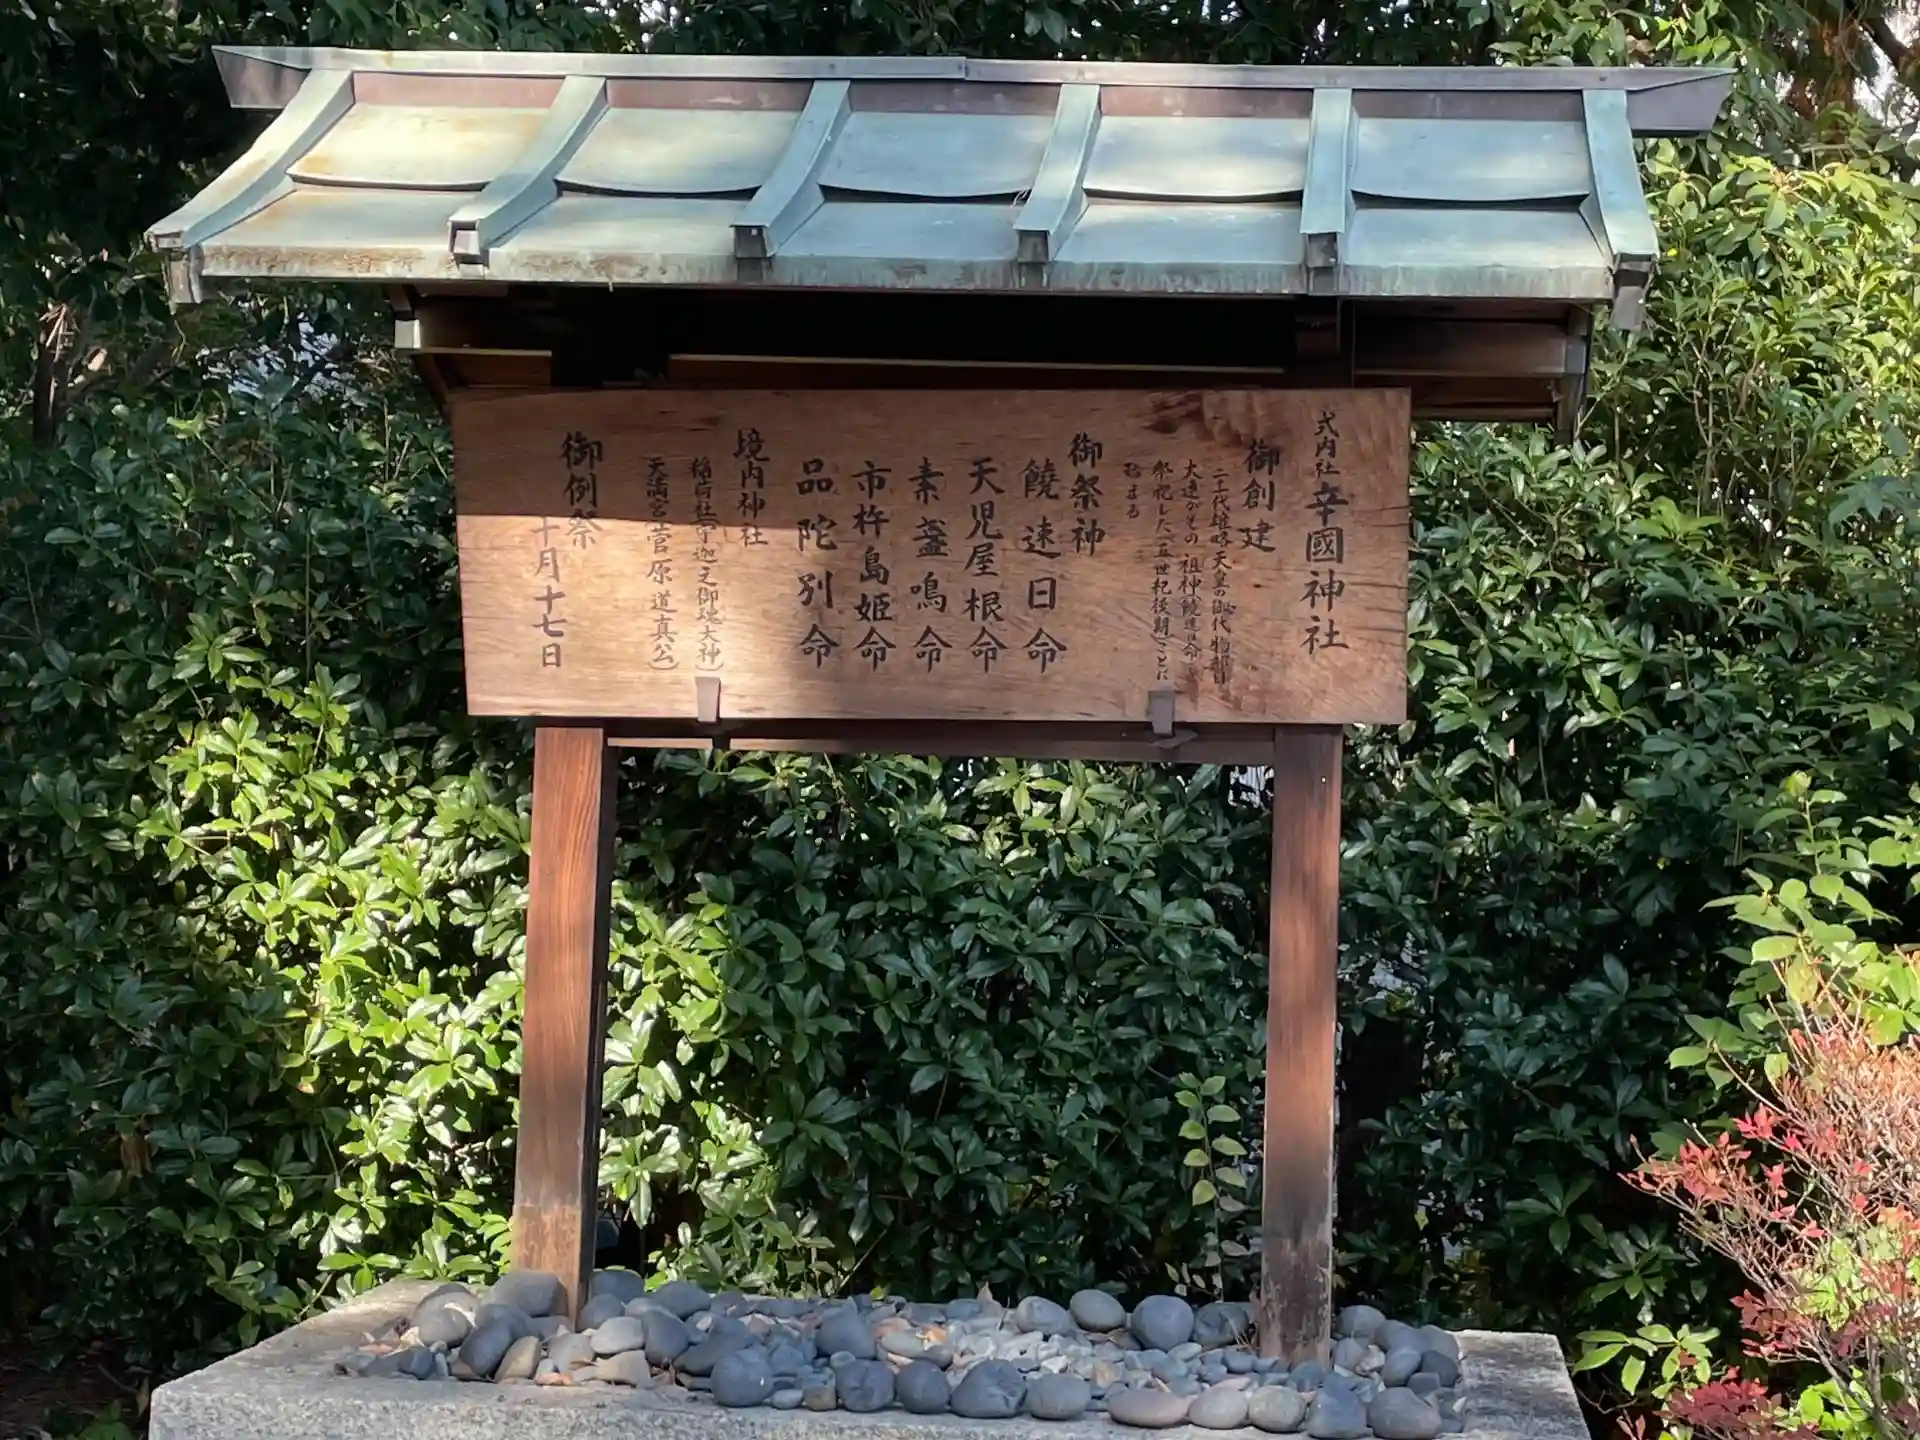 式内社 辛國神社
御創建
二十一代雄略天皇の御代 物部目
大連がその 祖神(饒速日命)を
祭祀した(五世紀後期)ことに
始まる
御祭神
饒速日命
天児屋根命
素盞鳴命
市杵島姫命
品陀別命
境内神社
稲荷社(宇迦之御魂大神)
天満宮(菅原道真公)
御例祭
十月十七日